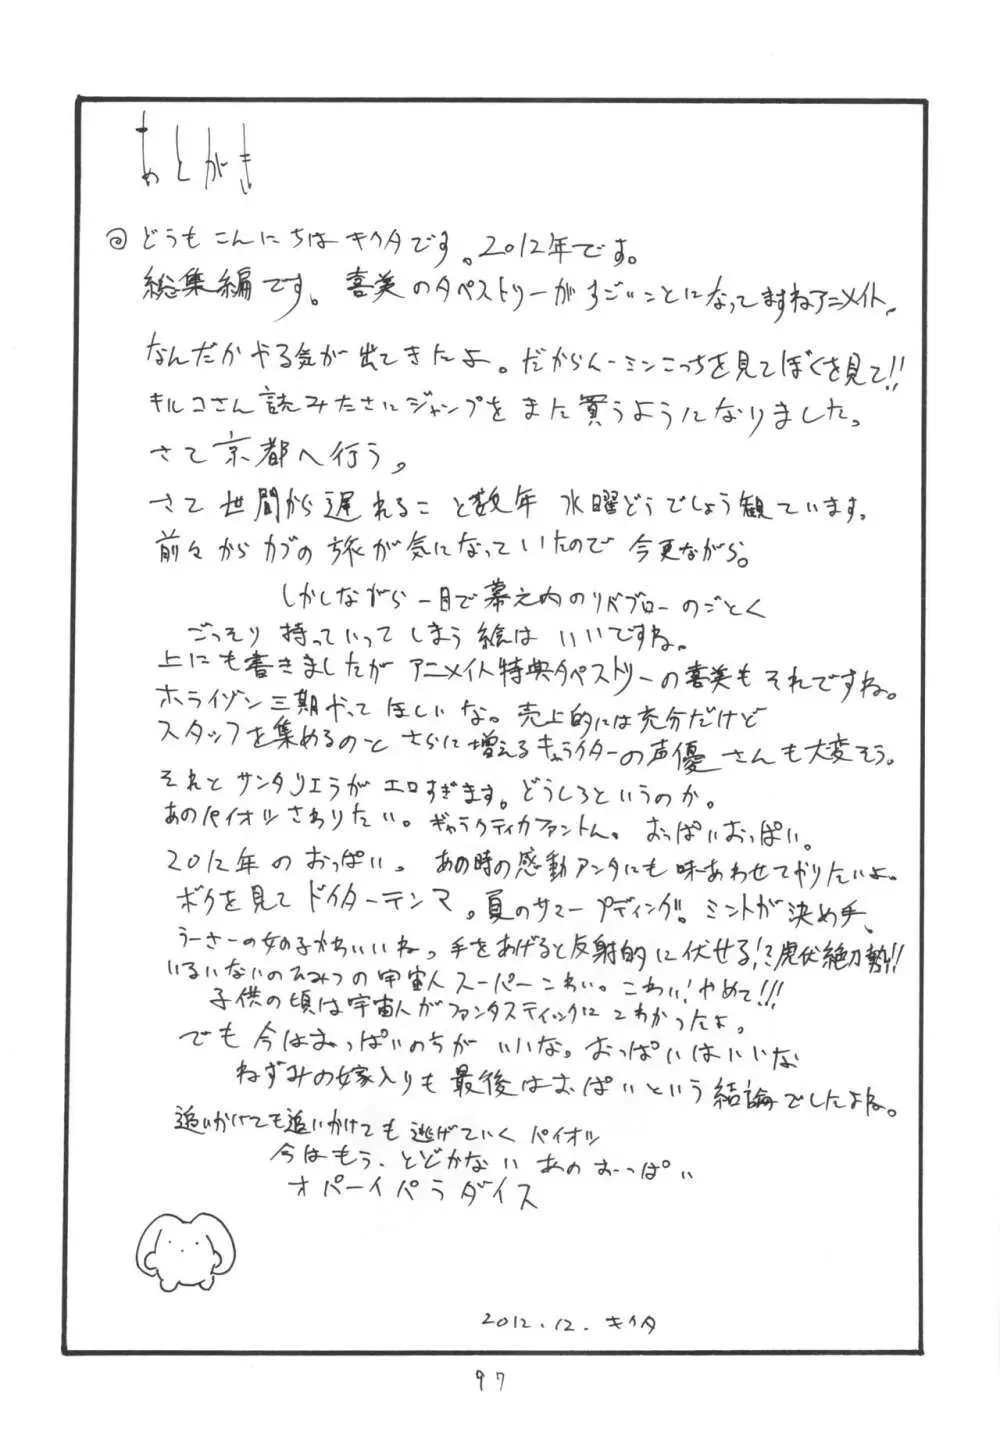 あとがき
どうもこんにちは キクタです。2012年です。
総集編です。喜美のタペストリーがすごいことになってますねアニメイト、
なんだかやる気が出てきたよ。だからんーミンこっちを見てぼくを見て!!
キルコさん読みたさにジャンプをまた買うようになりました。
さて京都へ行う。
さて世間から遅れること数年 水曜どうでしょう観ています。
前々からカブの旅が気になっていたので今更ながら。
しかしながら一日で幕之内のリバブローのごとく
ごっそり持っていってしまう絵はいいですね。
上にも書きましたがアニメイト特典タペストリーの喜美もそれですね。
ホライゾン三期やってほしいな。売上的には充分だけど
スタッフを集めるのとさらに増えるキャラクターの声優さんも大変そう。
それとサンタリエラがエロすぎます。どうしろというのか。
あのパイオツさわりたい。ギャラクティカファントム。おっぱいおっぱい。
2012年のおっぱい。あの時の感動アンタにも味あわせてやりたいよ。
ボクを見てドクターテンマ。夏のサマープディング。ミントが決め手、
うーさーの女の子かわいいね。手をあげると反射的に伏せる!?虎伏絶刀勢!!
いるいないのひみつの宇宙人スーパーこわい。こわい!やめて!!!
子供の頃は宇宙人がファンタスティックにこわかったよ。
でも今はおっぱいのちがいいな。おっぱいはいいな
ねずみの嫁入りも最後はおぱいという結論でしたよね。
追いかけても追いかけても逃げていくパイオツ
今はもう、とどかない あのおっぱい
オパーイパラダイス
2012.12. キクタ
97